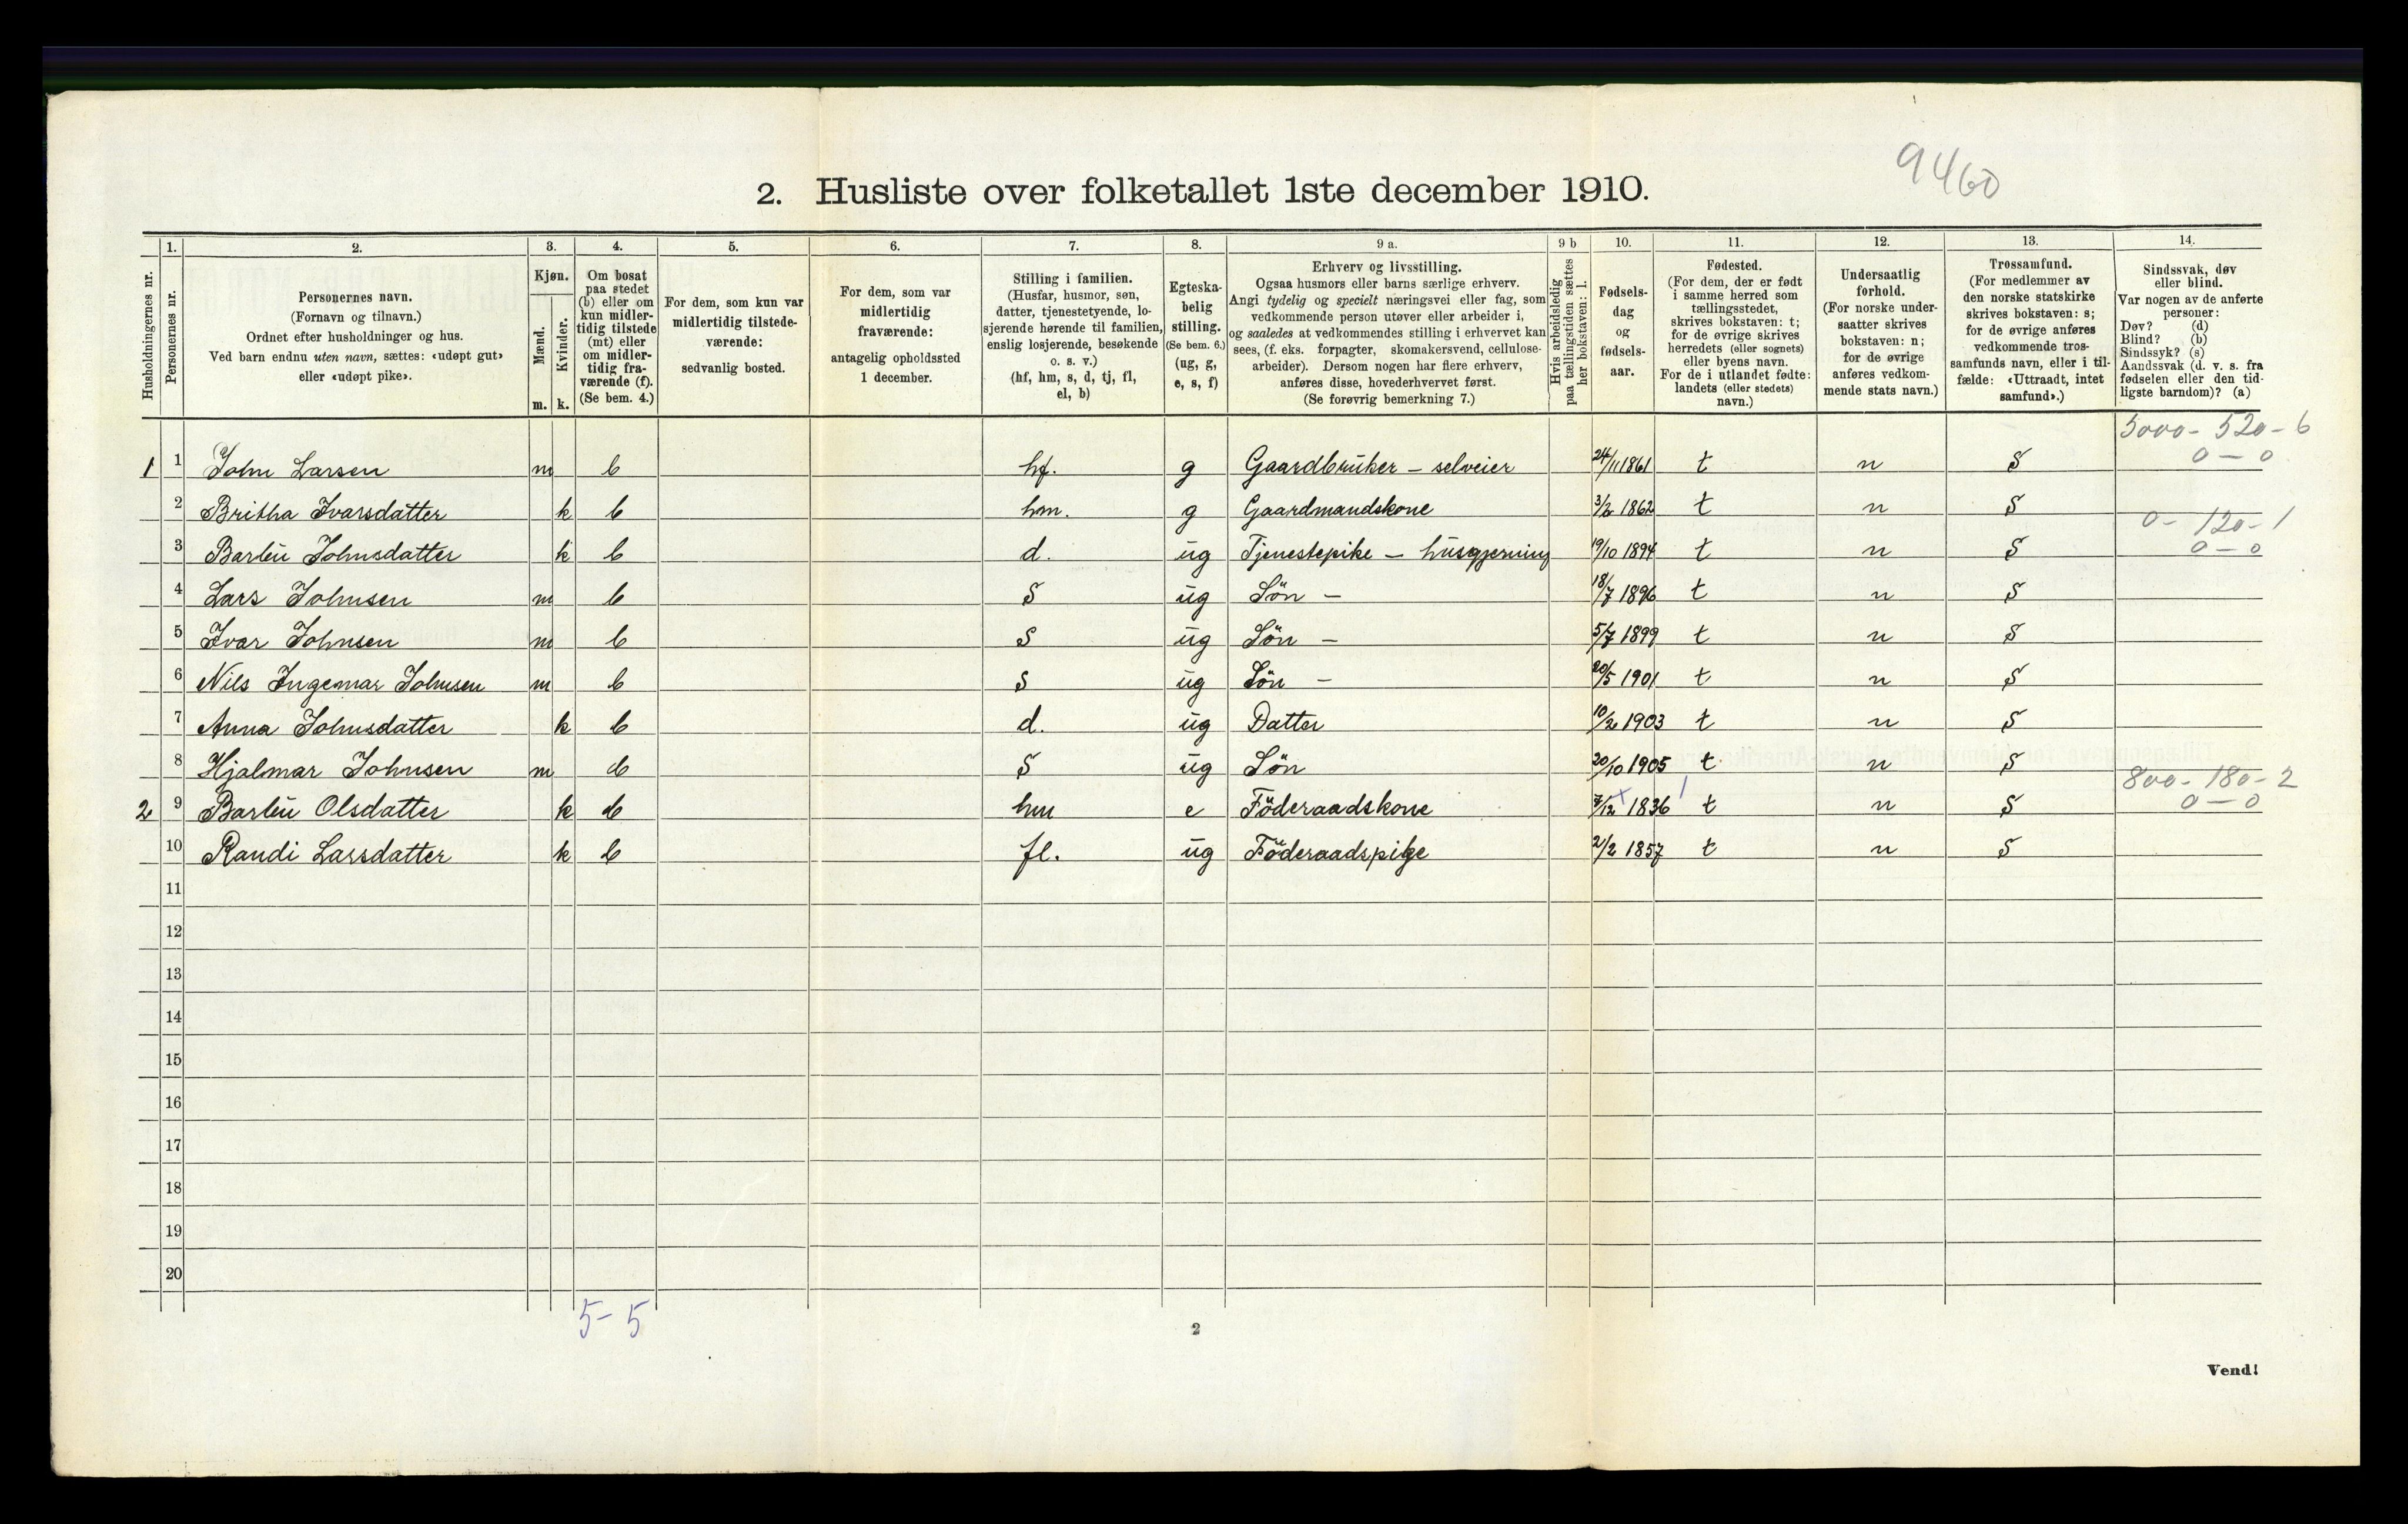 9460
2. Husliste over folketallet 1ste december 1910.
Husholdningernes nr.
1.
Personernes nr.
2.
Personernes navn.
(Fornavn og tilnavn.)
Ordnet efter husholdninger og hus.
Ved barn endnu uten navn, sættes: «udøpt gut»
eller «udøpt pike».
3.
Kjøn.
Mænd.
Kvinder.
m. k.
4.
Om bosat
paa stedet
(b) eller om
kun midler-
tidig tilstede
(mt) eller
om midler-
tidig fra-
værende (f).
(Se bem. 4.)
5.
For dem, som kun var
midlertidig tilstede-
værende:
sedvanlig bosted.
6.
For dem, som var
midlertidig
fraværende:
antagelig opholdssted
1 december.
7.
Stilling i familien.
(Husfar, husmor, søn,
datter, tjenestetyende, lo-
sjerende hørende til familien,
enslig losjerende, besøkende
o. s. v.)
(hf, hm, s, d, tj, fl,
el, b)
8.
Egteska-
belig
stilling.
(Se bem. 6.)
(ug, g,
e, s, f)
9 a.
Erhverv og livsstilling.
Ogsaa husmors eller barns særlige erhverv.
Angi tydelig og specielt næringsvei eller fag, som
vedkommende person utøver eller arbeider i,
og saaledes at vedkommendes stilling i erhvervet kan
sees, (f. eks. forpagter, skomakersvend, cellulose-
arbeider). Dersom nogen har flere erhverv,
anføres disse, hovederhvervet først.
(Se forøvrig bemerkning 7.)
9 b
Hvis arbeidsledig
paa tællingstiden sættes
her bokstaven: l.
10.
Fødsels-
dag
og
fødsels-
aar.
11.
Fødested.
(For dem, der er født
i samme herred som
tællingsstedet,
skrives bokstaven: t;
for de øvrige skrives
herredets (eller sognets)
eller byens navn.
For de i utlandet fødte:
landets (eller stedets)
navn.)
12.
Undersaatlig
forhold.
(For norske under-
saatter skrives
bokstaven: n;
for de øvrige
anføres vedkom-
mende stats navn.)
13.
Trossamfund.
(For medlemmer av
den norske statskirke
skrives bokstaven: s;
for de øvrige anføres
vedkommende tros-
samfunds navn, eller i til-
fælde: «Uttraadt, intet
samfund».)
14.
Sindssvak, døv
eller blind.
Var nogen av de anførte
personer:
Døv? (d)
Blind? (b)
Sindssyk? (s)
Aandssvak (d. v. s. fra
fødselen eller den tid-
ligste barndom)? (a)
5000 - 520 - 6
1 1 John Larsen m b hf. g Gaardbruker - selveier 24/11 1861 t n S 0 - 0
2 Britha Ivarsdatter k b hm. g Gaardmandskone 3/2 1862 t n S
0 - 120 - 1
3 Barbru Johnsdatter k b d. ug Tjenestepike - husgjerning 19/10 1894 t n S 0 - 0
4 Lars Johnsen m b S ug Sön - 18/7 1896 t n S
5 Ivar Johnsen m b S ug Sön - 5/7 1899 t n S
6 Nils Ingemar Johnsen m b S ug Sön - 20/5 1901 t n S
7 Anna Johnsdatter k b d. ug Datter 10/2 1903 t n S
8 Hjalmar Johnsen m b S ug Sön 20/10 1905 t n S
800 - 180 - 2
2 9 Barbru Olsdatter k b hm e Föderaadskone 7/12 1836 t n S 0 - 0
10 Randi Larsdatter k b fl. ug Föderaadspige 2/2 1857 t n S
11
12
13
14
15
16
17
18
19
20
5 - 5
2
Vend!